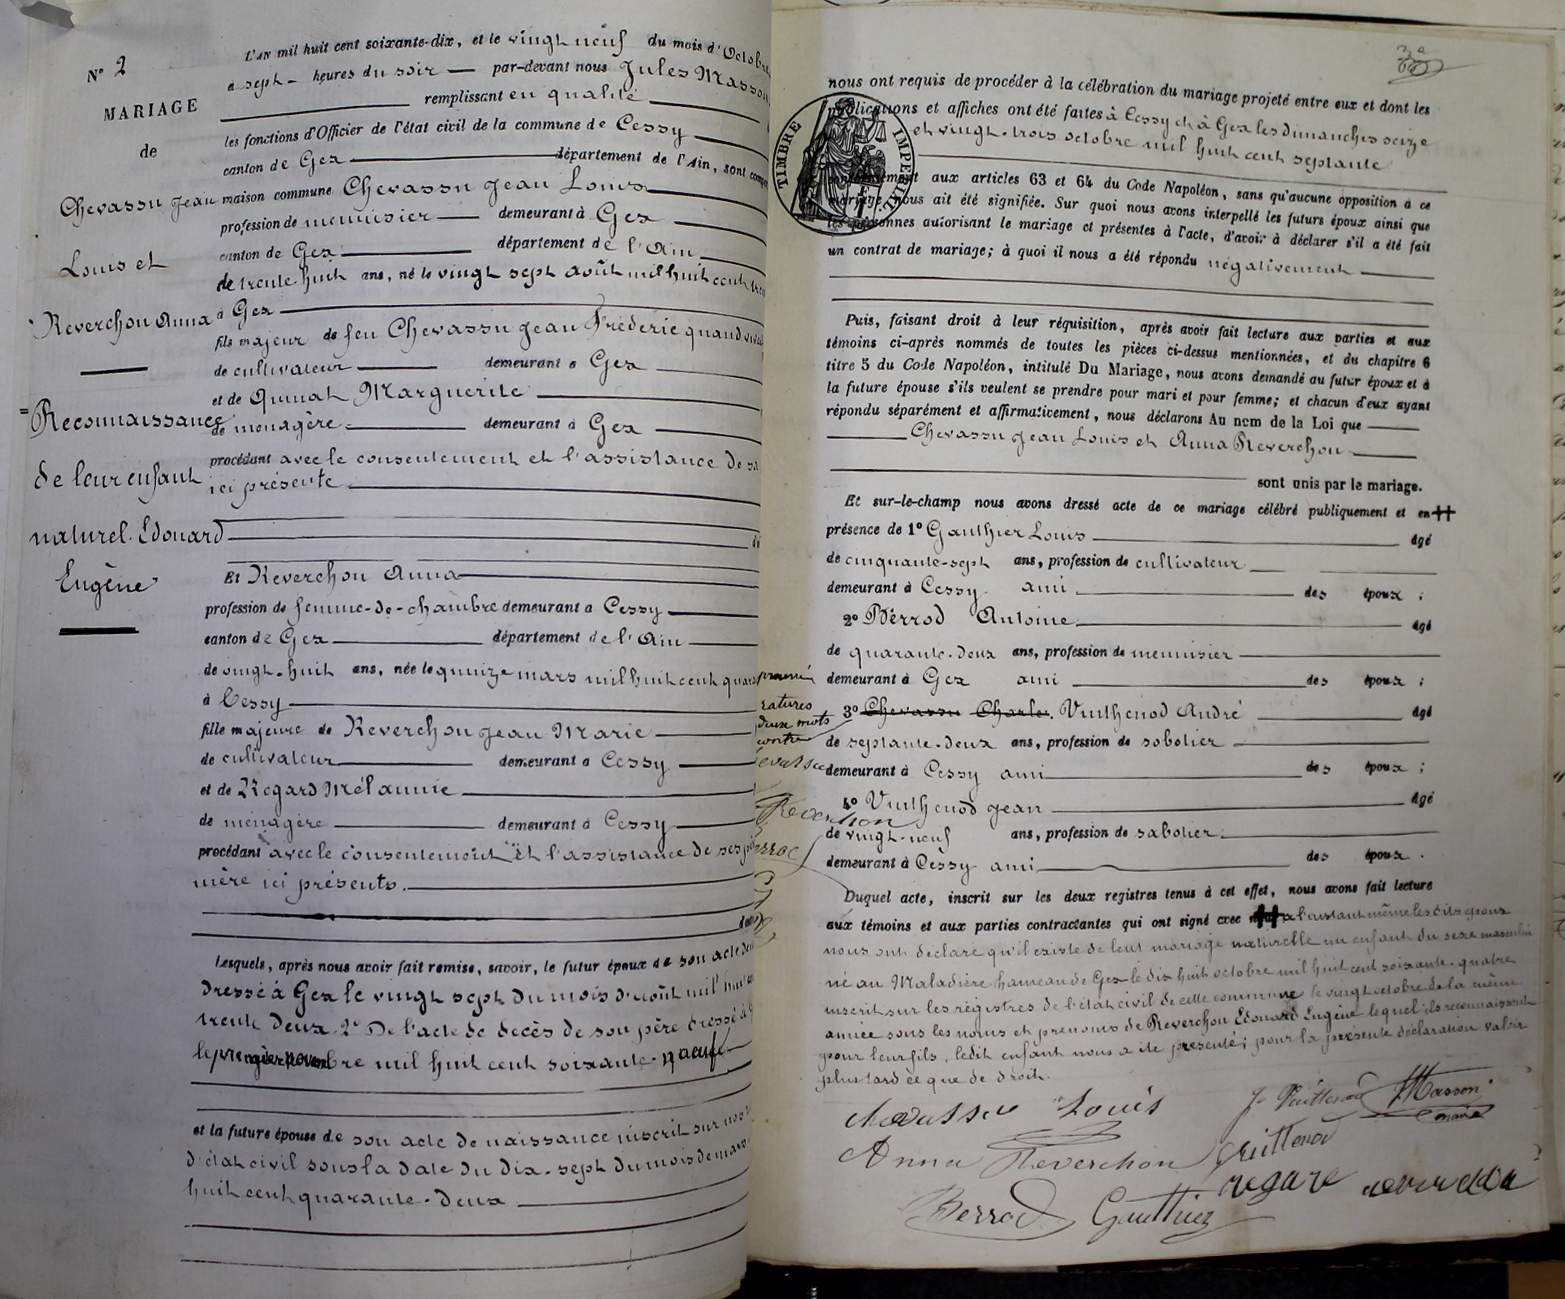 N° 2
MARIAGE
de
Chevassu Jean
Louis et
Reverchon Anna
Reconnaissance
de leur enfant
naturel Edouard
Eugène
L'an mil huit cent soixante-dix, et le vingt neuf du mois d'Octobre,
à sept heures du soir par-devant nous Jules Masson,
remplissant en qualité
les fonctions d'Officier de l'état civil de la commune de Cessy
canton de Gex département de l'Ain, sont
maison commune Chevassu Jean Louis
profession de menuisier demeurant à Gex
canton de Gex département de l'Ain
de trente huit ans, né le vingt sept août mil huit cent
à Gex
fils majeur de feu Chevassu Jean Frédéric quand
de cultivateur demeurant à Gex
et de Quinat Marguerite
de ménagère demeurant à Gex
procédant avec le consentement et l'assistance de sa
ici présente
Et Reverchon Anna
profession de femme-de-chambre demeurant à Cessy
canton de Gex département de l'Ain
de vingt-huit ans, née le quinze mars mil huit cent
à Cessy
fille majeure de Reverchon Jean Marie
de cultivateur demeurant à Cessy
et de Regard Mélannie
de ménagère demeurant à Cessy
procédant avec le consentement et l'assistance de ses
mère ici présents.
Lesquels, après nous avoir fait remise, savoir, le futur époux de son acte de
dressé à Gex le vingt sept du mois d'août mil huit
trente deux 2° De l'acte de décès de son père dressé à
le mil huit cent soixante-
et la future épouse de son acte de naissance inscrit sur nos
d'état civil sous la date du dix-sept du mois de mars
huit cent quarante-deux
ratures
deux mots
Reverchon
3e
nous ont requis de procéder à la célébration du mariage projeté entre eux et dont les
publications et affiches ont été faites à Cessy et à Gex les dimanches seize
et vingt-trois octobre mil huit cent septante
TIMBRE IMPERIAL
conformément aux articles 63 et 64 du Code Napoléon, sans qu'aucune opposition à ce
mariage nous ait été signifiée. Sur quoi nous avons interpellé les futurs époux ainsi que
les personnes autorisant le mariage et présentes à l'acte, d'avoir à déclarer s'il a été fait
un contrat de mariage; à quoi il nous a été répondu négativement
Puis, faisant droit à leur réquisition, après avoir fait lecture aux parties et aux
témoins ci-après nommés de toutes les pièces ci-dessus mentionnées, et du chapitre 6
titre 5 du Code Napoléon, intitulé Du Mariage, nous avons demandé au futur époux et à
la future épouse s'ils veulent se prendre pour mari et pour femme; et chacun d'eux ayant
répondu séparément et affirmativement, nous déclarons Au nom de la Loi que
Chevassu Jean Louis et Anna Reverchon
sont unis par le mariage.
Et sur-le-champ nous avons dressé acte de ce mariage célébré publiquement et en
présence de 1° Gauthier Louis âgé
de cinquante-sept ans, profession de cultivateur
demeurant à Cessy ami des époux ;
2° Bérrod Antoine âgé
de quarante-deux ans, profession de menuisier
demeurant à Gex ami des époux ;
3° Chevassu Charles. Vuithenod André âgé
de septante-deux ans, profession de sabotier
demeurant à Cessy ami des époux ;
4° Vuithenod Jean âgé
de vingt-neuf ans, profession de sabotier
demeurant à Cessy ami des époux.
Duquel acte, inscrit sur les deux registres tenus à cet effet, nous avons fait lecture
aux témoins et aux parties contractantes qui ont signé avec à l'instant même les dits époux
nous ont déclaré qu'il existe de leur mariage naturelle un enfant du sexe masculin
né au Maladière hameau de Gex le dix huit octobre mil huit cent soixante-quatre
inscrit sur les régistres de l'état civil de cette commune le vingt octobre de la même
année sous les noms et prénoms de Reverchon Edouard Eugène lequel ils reconnaissent
pour leur fils, ledit enfant nous a été présenté; pour la présente déclaration valoir
plus tard ce que de droit.
chevassu Louis
J. Vuithenod JMasson
maire
Anna Reverchon
vuittenod
regard reverchon
Berrod Gauthier